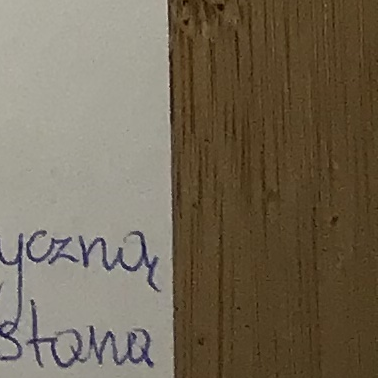 yczną
stana